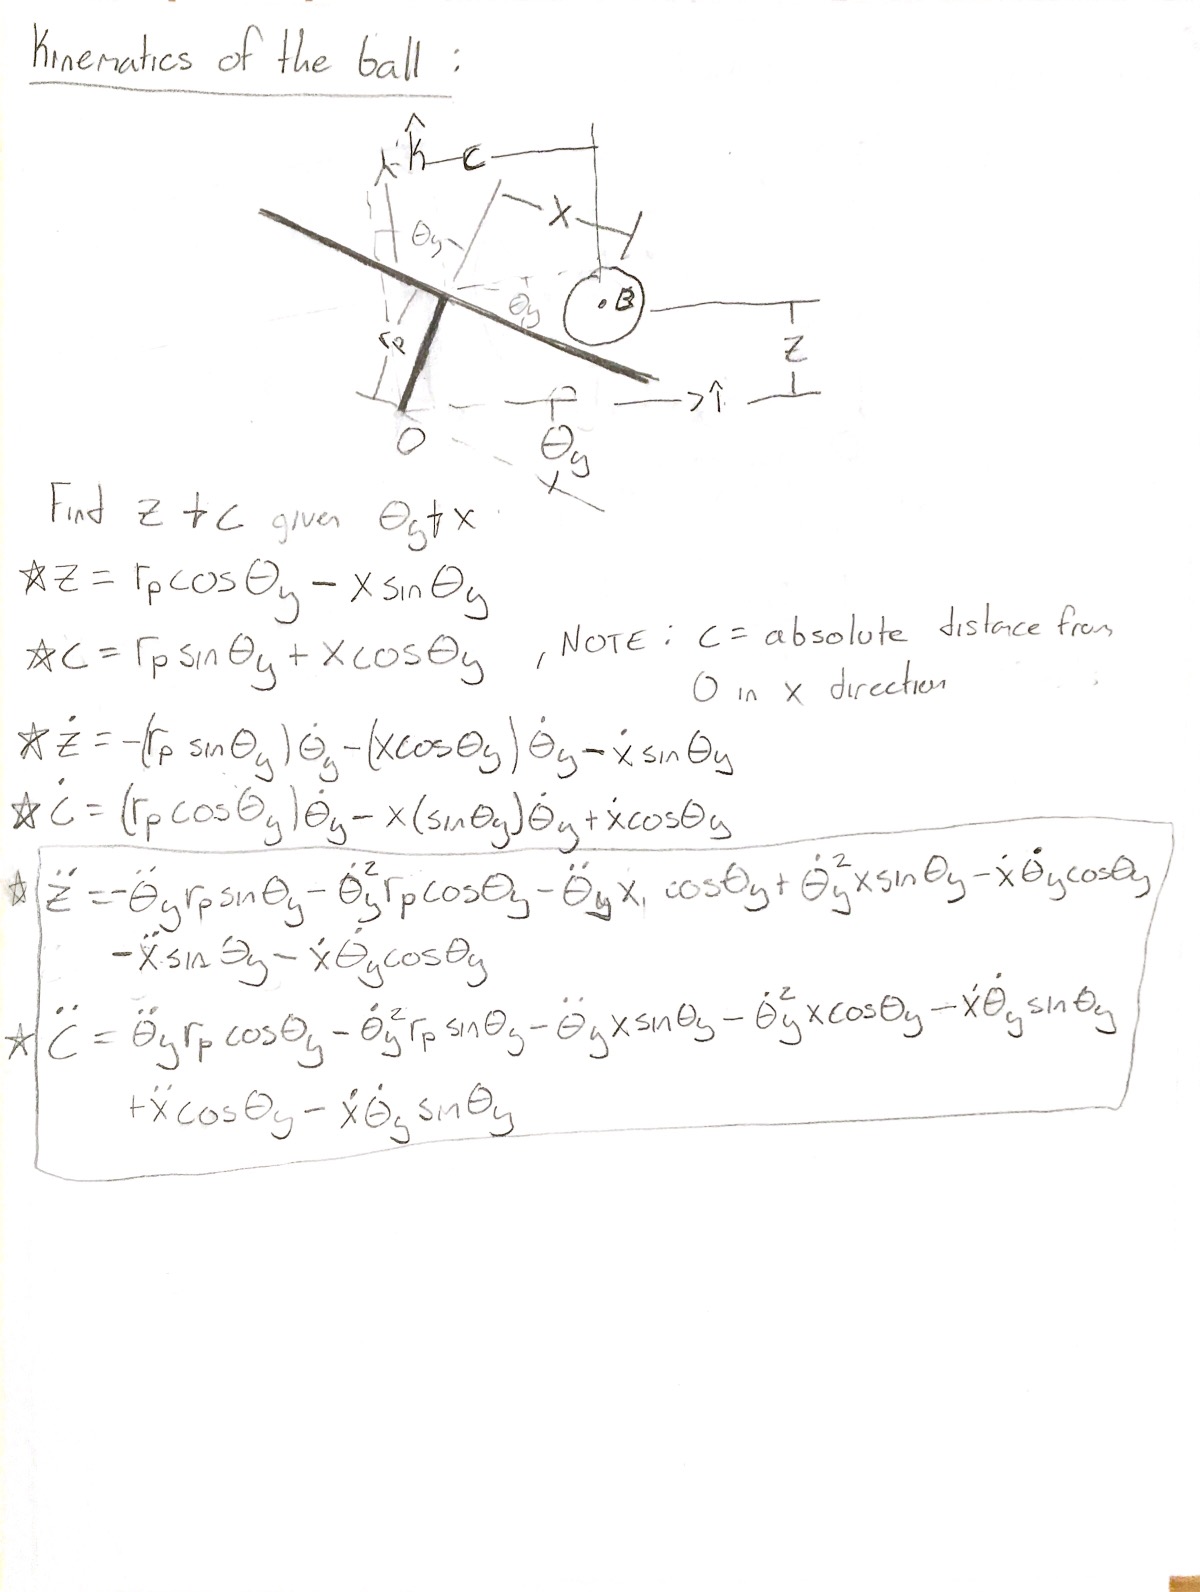 Kinematics of the ball :
k̂
C
x
θy
θy
B
rp
z
î
O
θy
x
Find z + c given θy + x
☆ z = rp cosθy − x sinθy
☆ c = rp sinθy + x cosθy , NOTE : c = absolute distance from
O in x direction
☆ ż = −(rp sinθy)θ̇y − (x cosθy)θ̇y − ẋ sinθy
☆ ċ = (rp cosθy)θ̇y − x(sinθy)θ̇y + ẋcosθy
☆ z̈ = −θ̈y rp sinθy − θ̇y² rp cosθy − θ̈y x, cosθy + θ̇y² x sinθy − ẋ θ̇y cosθy
− ẍ sin θy − ẋ θ̇y cosθy
☆ c̈ = θ̈y rp cosθy − θ̇y² rp sinθy − θ̈y x sinθy − θ̇y² x cosθy − ẋ θ̇y sinθy
+ ẍ cosθy − ẋ θ̇y sinθy